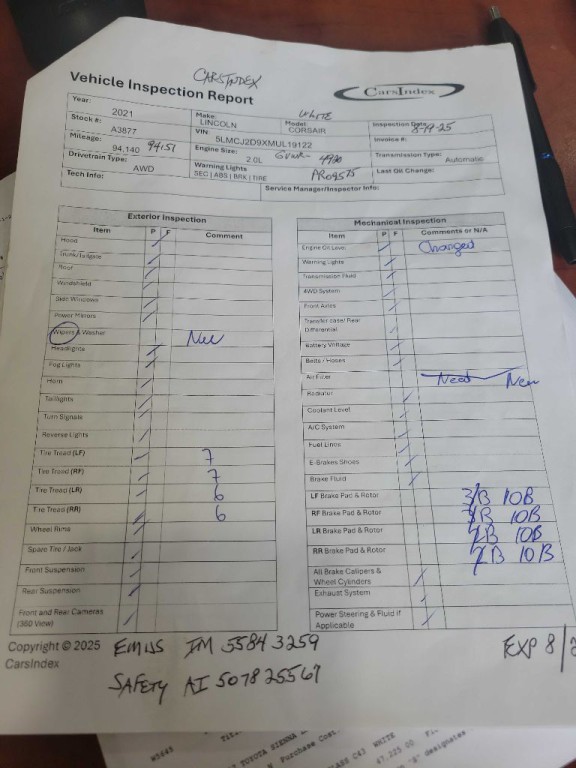 CARSINDEX
Vehicle Inspection Report
CarsIndex
Year: 2021 Make: LINCOLN WHITE Model CORSAIR Inspection Date: 8-19-25
Stock #: A3877 VIN: 5LMCJ2D9XMUL19122 Invoice #:
Mileage: 94,140 94151 Engine Size: 2.0L GVWR- 4920 Transmission Type: Automatic
Drivetrain Type: AWD Warning Lights SEC | ABS | BRK | TIRE Last Oil Change:
Tech Info: Service Manager/Inspector Info:
Exterior Inspection
Item P F Comment
Hood
Trunk/Tailgate
Door
Windshield
Side Windows
Power Mirrors
Wipers & Washer New
Headlights
Fog Lights
Horn
Taillights
Turn Signals
Reverse Lights
Tire Tread (LF) 7
Tire Tread (RF) 7
Tire Tread (LR) 6
Tire Tread (RR) 6
Wheel Rims
Spare Tire / Jack
Front Suspension
Rear Suspension
Front and Rear Cameras
(360 View)
Mechanical Inspection
Item P F Comments or N/A
Engine Oil Level Changed
Warning Lights
Transmission Fluid
4WD System
Front Axles
Transfer case/ Rear
Differential
Battery Voltage
Belts / Hoses
Air Filter Need New
Radiator
Coolant Level
A/C System
Fuel Lines
E-Brakes Shoes
Brake Fluid
LF Brake Pad & Rotor 3/B 10B
RF Brake Pad & Rotor 10B
LR Brake Pad & Rotor 10B
RR Brake Pad & Rotor 10B
All Brake Calipers &
Wheel Cylinders
Exhaust System
Power Steering & Fluid if
Applicable
Copyright © 2025
CarsIndex
EMISS IM 55843259 EXP 8/2
SAFETY AI 507825567
W3643
TOYOTA SIENNA
Purchase Cost:
CLASS C43 WHITE
47,225.00
"S" designates